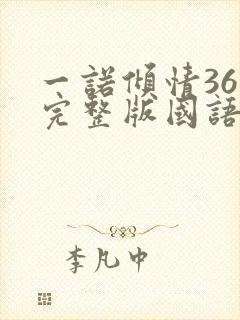 一諾傾情36
完整版國語
李凡中